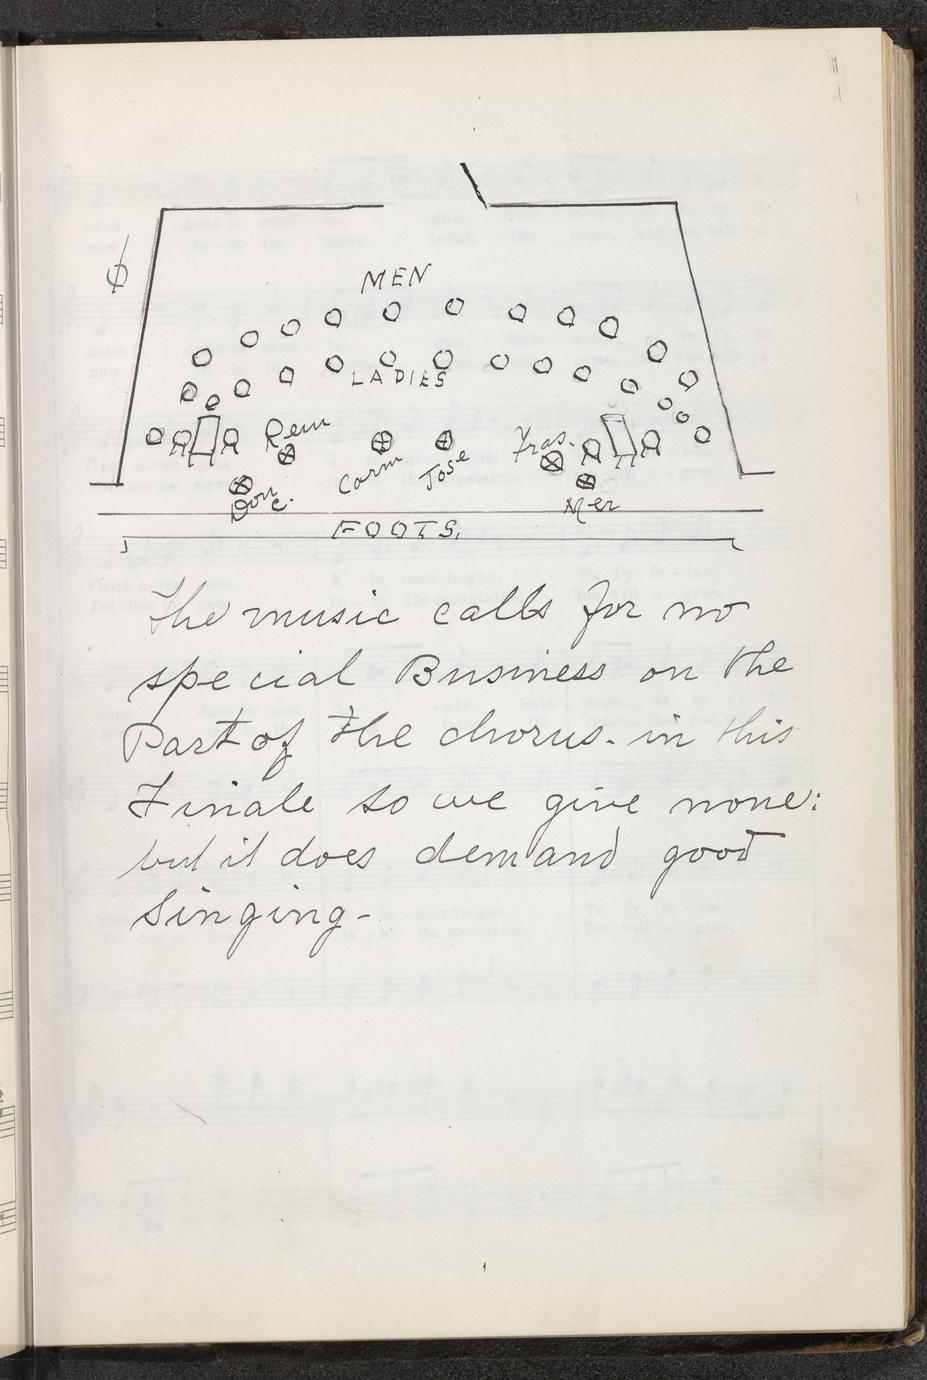 ϕ
MEN
LADIES
Rem
Carm
Jose
Fras.
Don C.
Mer
FOOTS.
The music calls for no
special Business on the
Part of the chorus. in this
Finale so we give none:
but it does demand good
Singing-